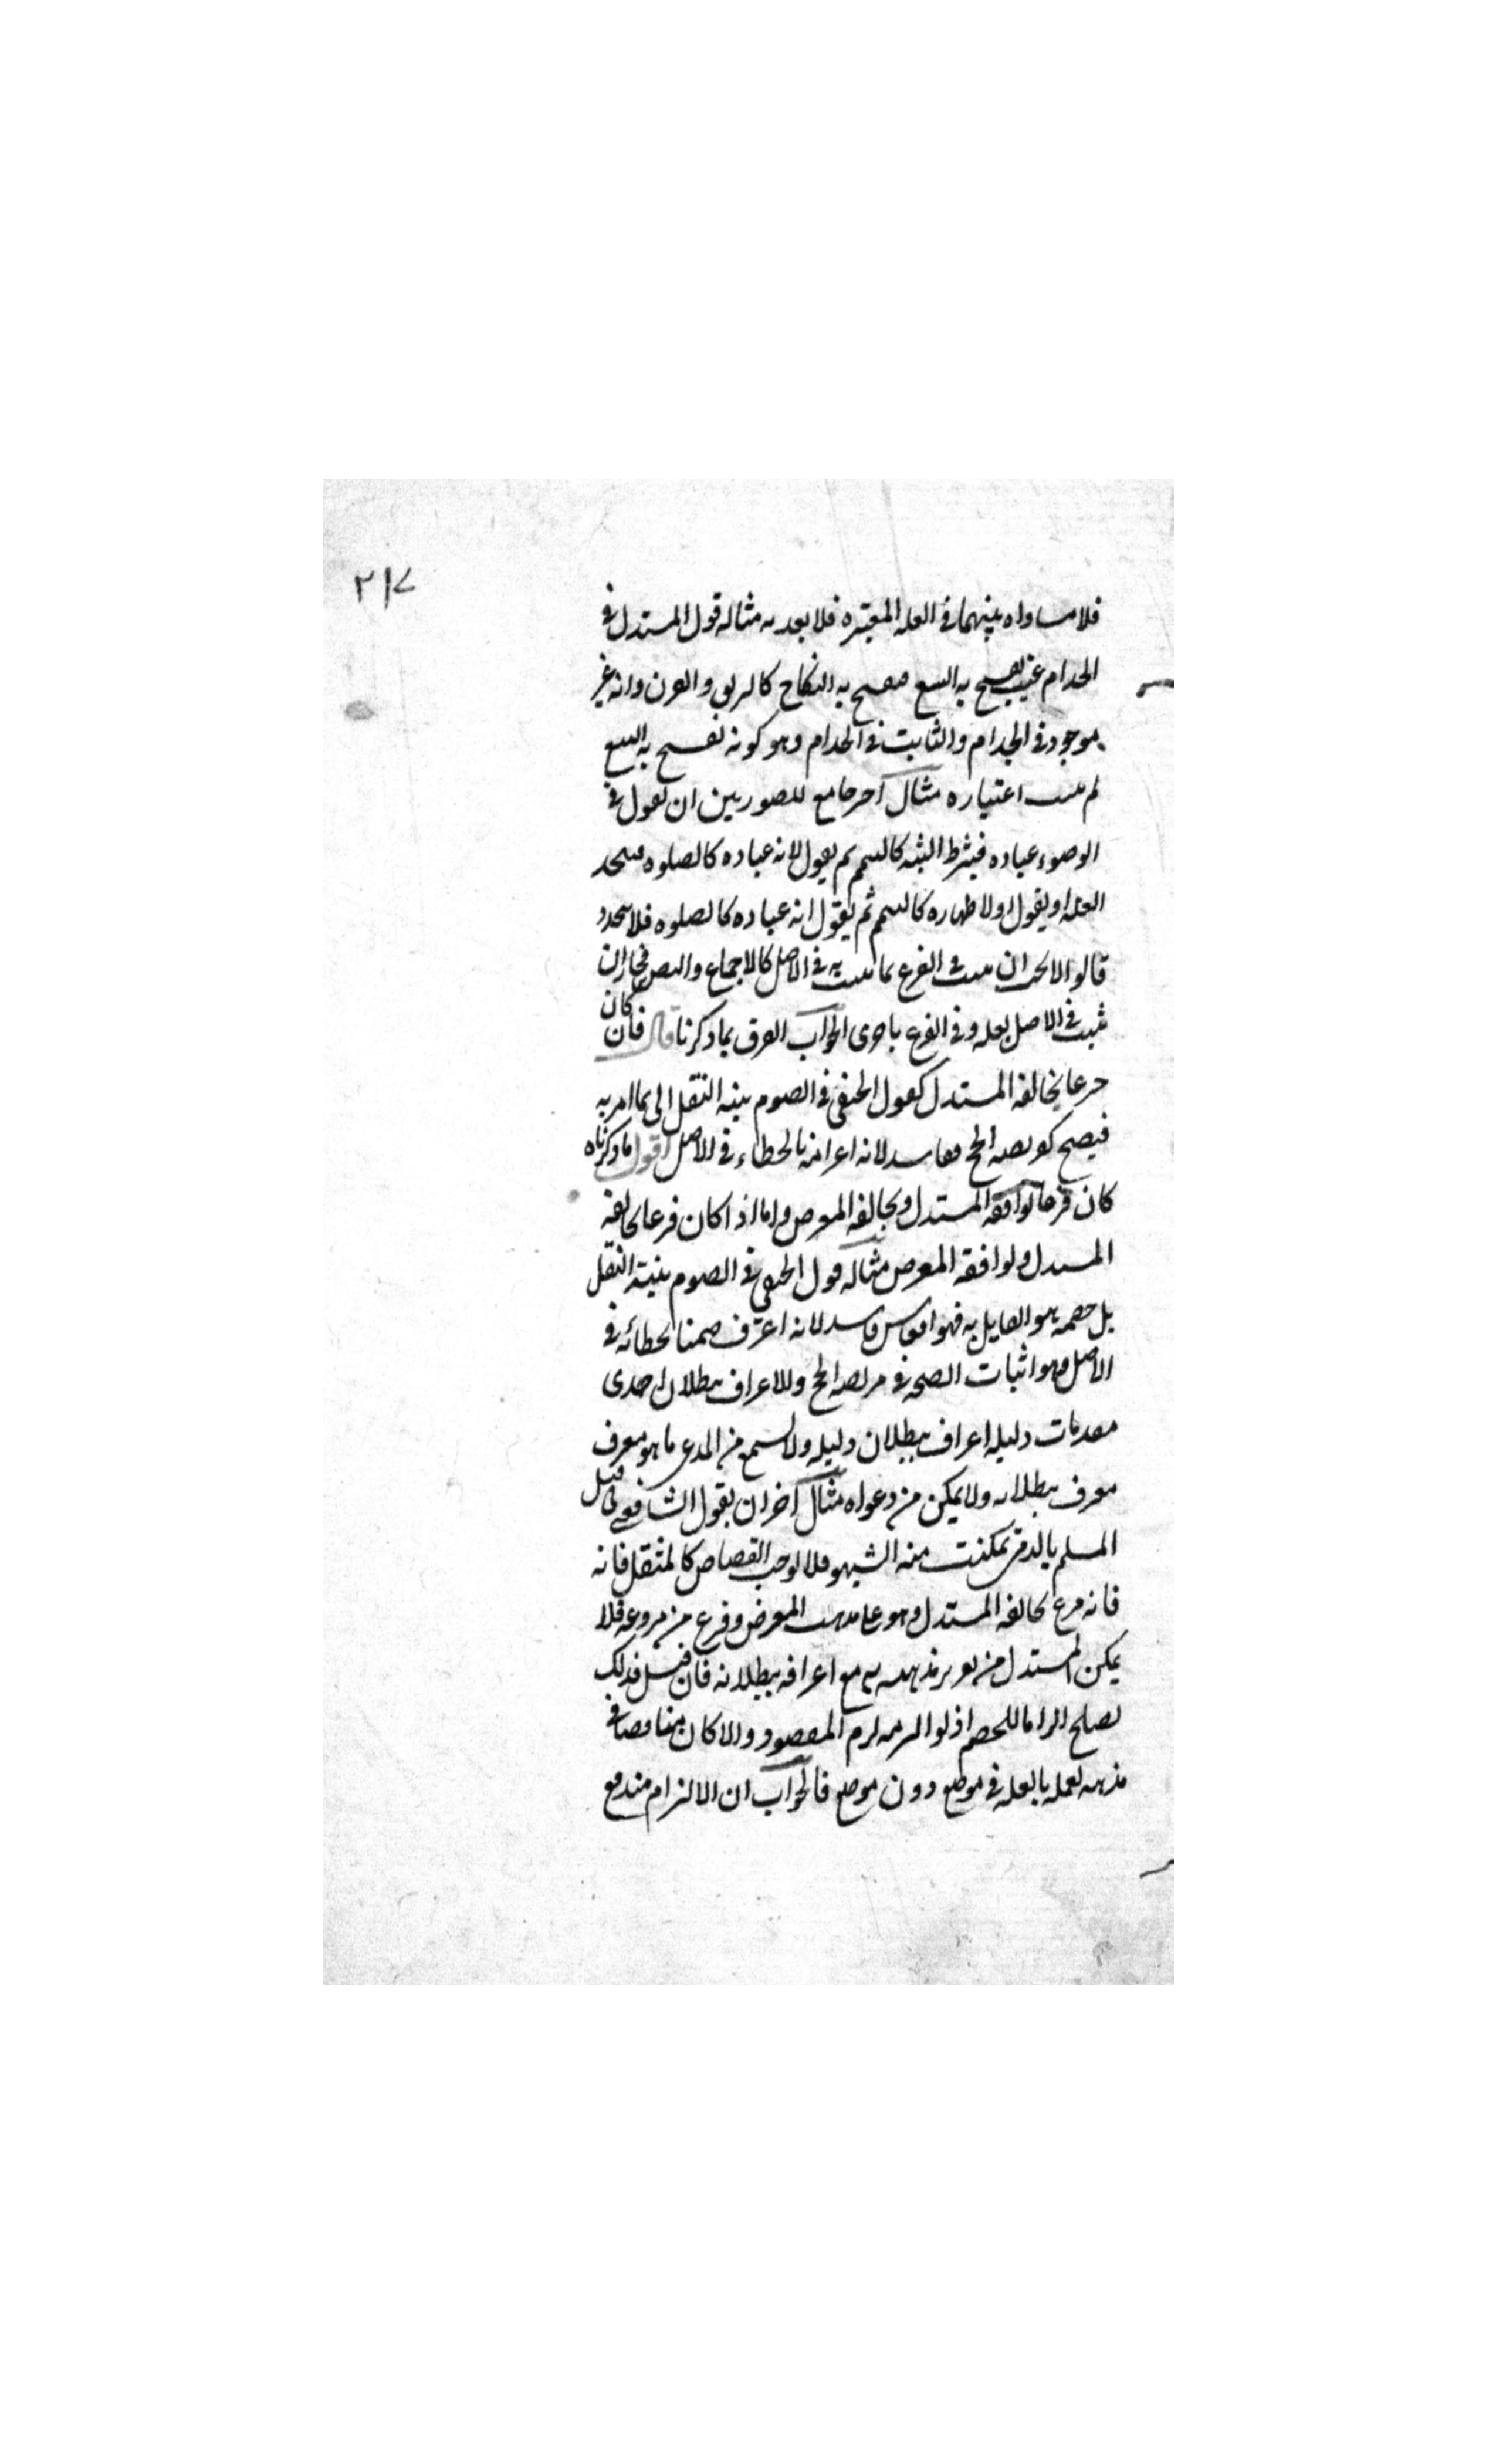 ٢١٧
فلا مساواه بينهما في العله المعتبره فلا يعديه مثاله قول المستدل في
الجذام عيب يفسح به البيع فيفسح به النكاح كالرتق والقرن وانه غير
موجود في الجذام والثابت في الجذام وهو كونه يفسح به البيع
لم يثبت اعتباره مثال آخر جامع للصورتين ان يقول في
الوضوء عباده فيشترط النيه كالتيمم ثم يقول لانه عباده كالصلوه فيتحد
العله او يقول اولا طهاره كالتيمم ثم يقول انه عباده كالصلوه فلا يتحد
قالوا لا يجب ان يثبت في الفرع بما يثبت به في الاصل كالاجماع والنص فجاز ان
يثبت في الاصل بعله وفي الفرع باخرى الجواب الفرق بما ذكرنا قال فان كان
فرعا يخالفه المستدل كقول الحنفي في الصوم بنيه النفل اتى بما امر به
فيصح كفريضه الحج ففاسد لانه اعترافه بالخطاء في الاصل اقول ما ذكرناه
كان فرعا يوافقه المستدل ويخالفه المعترض واما اذا كان فرعا يخالفه
المستدل ويوافقه المعترض مثاله قول الحنفي في الصوم بنيته النفل
بل خصمه هو القايل به فهو قياس فاسد لانه اعترف ضمنا بخطائه في
الاصل وهو اثبات الصحه في فريضه الحج والاعتراف ببطلان احدى
مقدمات دليله اعتراف ببطلان دليله ولا يسمع من المدعي ما هو معترف
معترف ببطلانه ولا يمكن من دعواه مثال آخر ان يقول الشافعي في قتل
المسلم بالذمي تمكنت منه الشبهه فلا يوجب القصاص كالمثقل فانه
فانه فرع يخالفه المستدل وهو على مذهب المعترض وفرع من فروعه فلا
يمكن المستدل من تقرير مذهبه به مع اعترافه ببطلانه فان قيل فذلك
يصلح الزاما للخصم اذ لو التزمه لزم المقصود والا كان مناقضا في
مذهبه لعمله بالعله في موضع دون موضع فالجواب ان الالزام مندفع